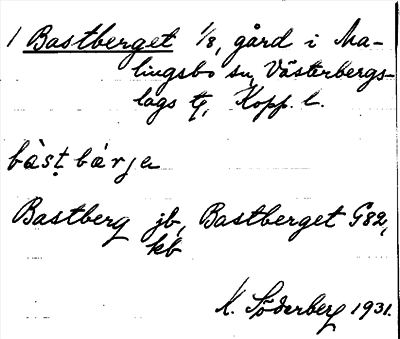 1 Bastberget 1/8, gård i Ma-
lingsbo sn, Västerbergs-
lags tg, Kopp. l.
bàsṭbàrjɐ
Bastberg jb, Bastberget G82,
kb
K. Söderberg 1931.